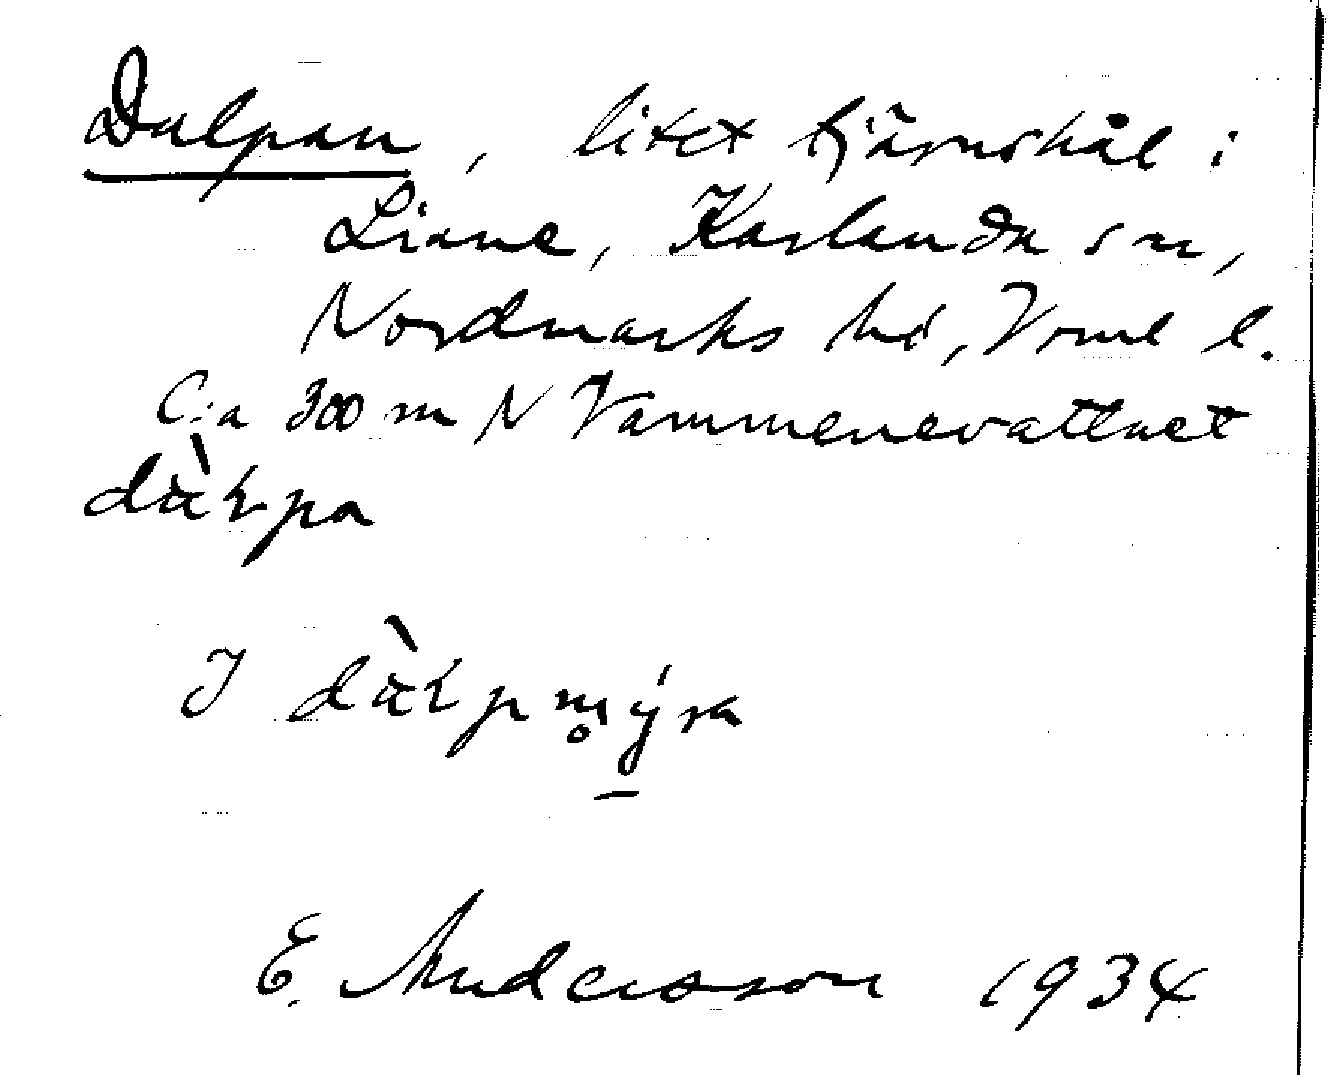 Dalpan, litet tjärnshål i
Liane, Karlanda sn,
Nordmarks hd, Vrml l.
C:a 300 m N Vammenevattnet
dàɬpa
I dàɬpm̥ýra
E. Andersson 1934